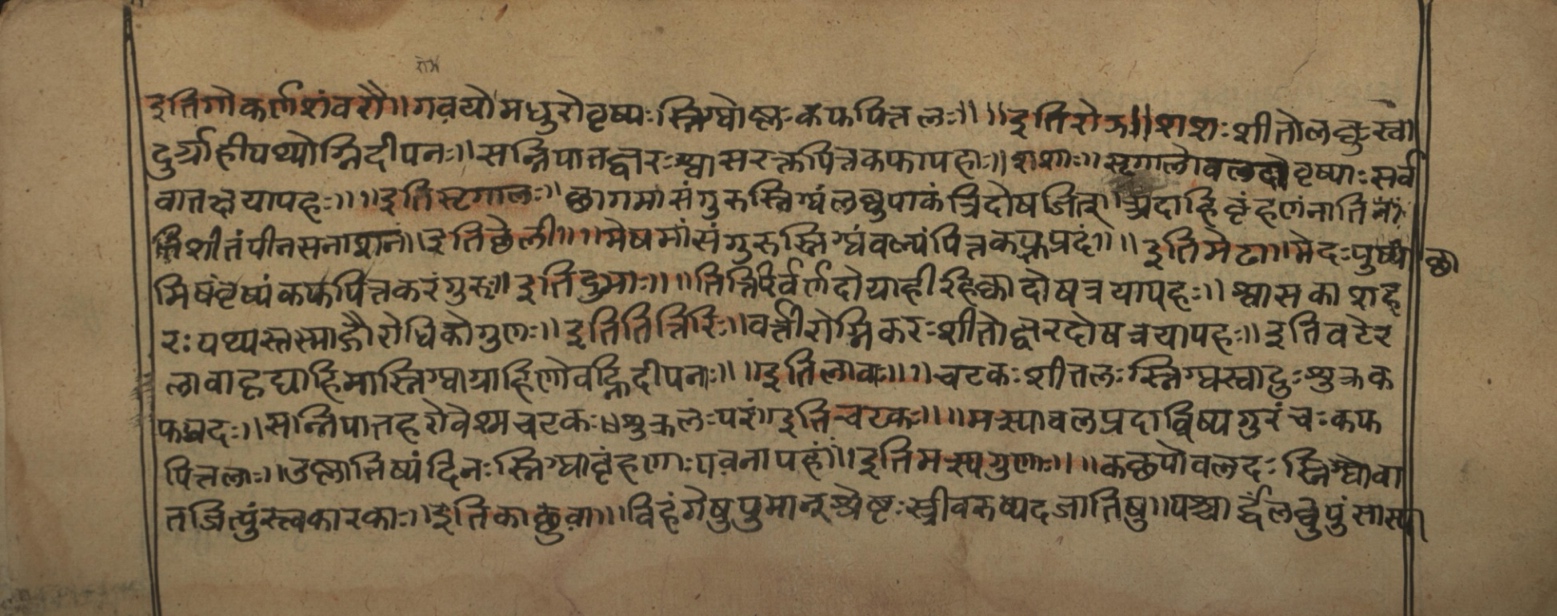 रोझ
इतिगोकर्णशंवरौ॥गवयोमधुरोवृष्यःस्निग्धोष्णःकफपित्तलः॥॥इतिरोझ॥शशःशीतोलघुःस्वा
दुर्ग्राहीपथ्योग्निदीपनः॥सन्निपातज्वरःश्वासरक्तपित्तकफापहाः॥शशाः॥सृगालोवलदोवृष्याःसर्व
वातक्षयापहः॥॥इतिसृगालः॥छागमांसंगुरुस्निग्धंलघुपाकंत्रिदोषजित्॥अदाहिवृंहणंनाति
शीतंपीनसनाशनं॥इतिछेली॥॥मेषमांसंगुरुस्निग्धंवल्यंपित्तकफप्रदं॥॥इतिमेढा॥मेदःपुष्पा
मिषंवृष्यंकफपित्तकरंगुरु॥इतिदुमाः॥॥तित्तिरिर्वर्णदोग्राहीहिक्कादोषत्रयापहः॥श्वासकाशह
रःपथ्यस्तस्माद्गौरोधिकोगुणः॥इतितित्तिरिः॥वर्त्तीरोग्निकरःशीतोज्वरदोषत्रयापहः॥इतिवटेर
लावाहृद्याहिमास्निग्धाग्राहिणोवह्निदीपनाः॥॥इतिलावाः॥॥चटकःशीतलःस्निग्धस्वादुःशुक्रक
फप्रदः॥सन्निपातहरोवेश्मचटकःशुक्रलःपरं॥इतिचटकः॥॥मत्स्यावलप्रदावृष्यगुरंचःकफ
पित्तलाः॥उष्णातिष्यंदिनःस्निग्धावृंहणाःपवनापहाः॥इतिमत्स्यगुणाः॥॥कछपोवलदःस्निग्धोवा
तजित्पुंस्त्वकारकाः॥इतिकाछुवा॥॥विहंगेषुपुमान्श्रेष्टःस्त्रीचतुष्पदजातिषु॥पश्चार्द्धंलघुपुंसास्या